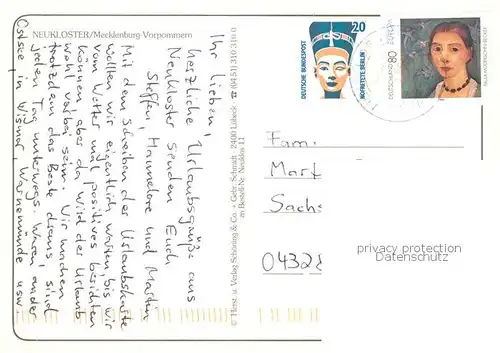 NEUKLOSTER/Mecklenburg-Vorpommern
Ihr lieben,
herzliche Urlaubsgrüße aus
Neukloster senden Euch
Steffen, Hannelore und Martin
Mit dem Schreiben der Urlaubskarte
wollten wir eigentlich warten bis wir
vom Wetter mal positives berichten
können aber da wird der Urlaub
wohl vorbei sein. Wir machen
trotzdem das Beste draus, sind
jeden Tag unterwegs. Waren an der
Ostsee in Wismar, Warnemünde usw.
© Herst. u. Verlag Schöning & Co. + Gebr. Schmidt · 2400 Lübeck ☎ (04 51) 310 310 0
zu Bestell-Nr. Neuklos 11
DEUTSCHE BUNDESPOST
20
NOFRETETE BERLIN
DEUTSCHLAND 80
PAULA MODERSOHN-BECKER
Fam.
Mart
Sachs
04328
privacy protection
Datenschutz